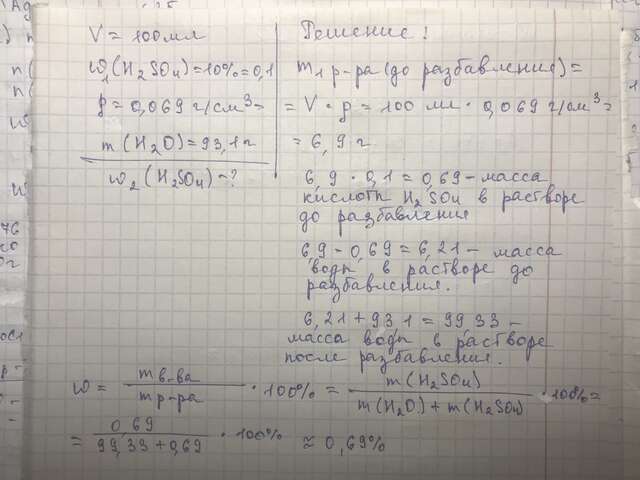 V = 100 мл
W₁(H₂SO₄)=10%=0,1
ρ = 0,069 г/см³
m(H₂O)=93,1 г
W₂(H₂SO₄)-?
Решение!
m₁ р-ра(до разбавления)=
= V · ρ = 100 мл · 0,069 г/см³ =
= 6,9 г
69 · 0,1 = 0,69 - масса
кислоты H₂SO₄ в растворе
до разбавления
69-0,69=6,21 - масса
воды в растворе до
разбавления.
621+931=9933 -
масса воды в растворе
после разбавления.
W = m в-ва / m р-ра · 100% = m(H₂SO₄) / m(H₂O) + m(H₂SO₄) · 100% =
= 0,69 / 99,33+0,69 · 100% ≈ 0,69%